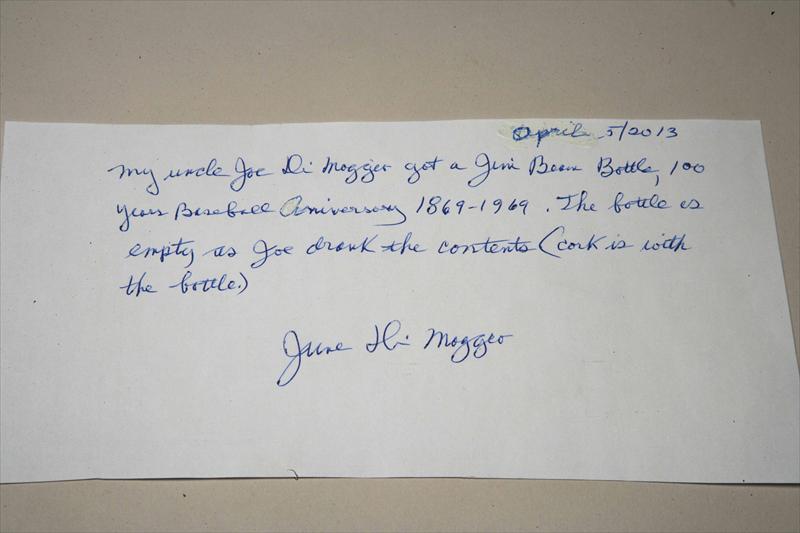 April 5/2013
My uncle Joe Di Moggeo got a Jim Beam Bottle, 100
years Baseball Aniversary 1869-1969. The bottle is
empty as Joe drank the contents (cork is with
the bottle.)
June Di Moggeo